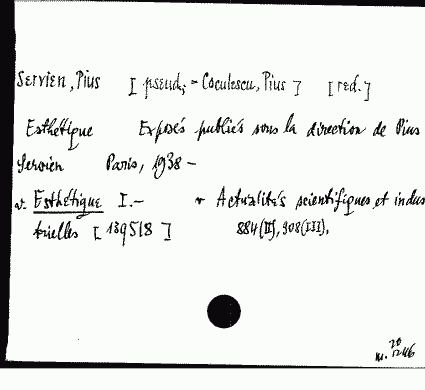 Servien, Pius [pseud; = Coculescu, Pius] [red.]
Esthétique Exposés publiés sous la direction de Pius
Servien Paris, 1938 –
v. Esthétique I.– * Actualités scientifiques et indus
trielles [139518] 884(II), 908(III),